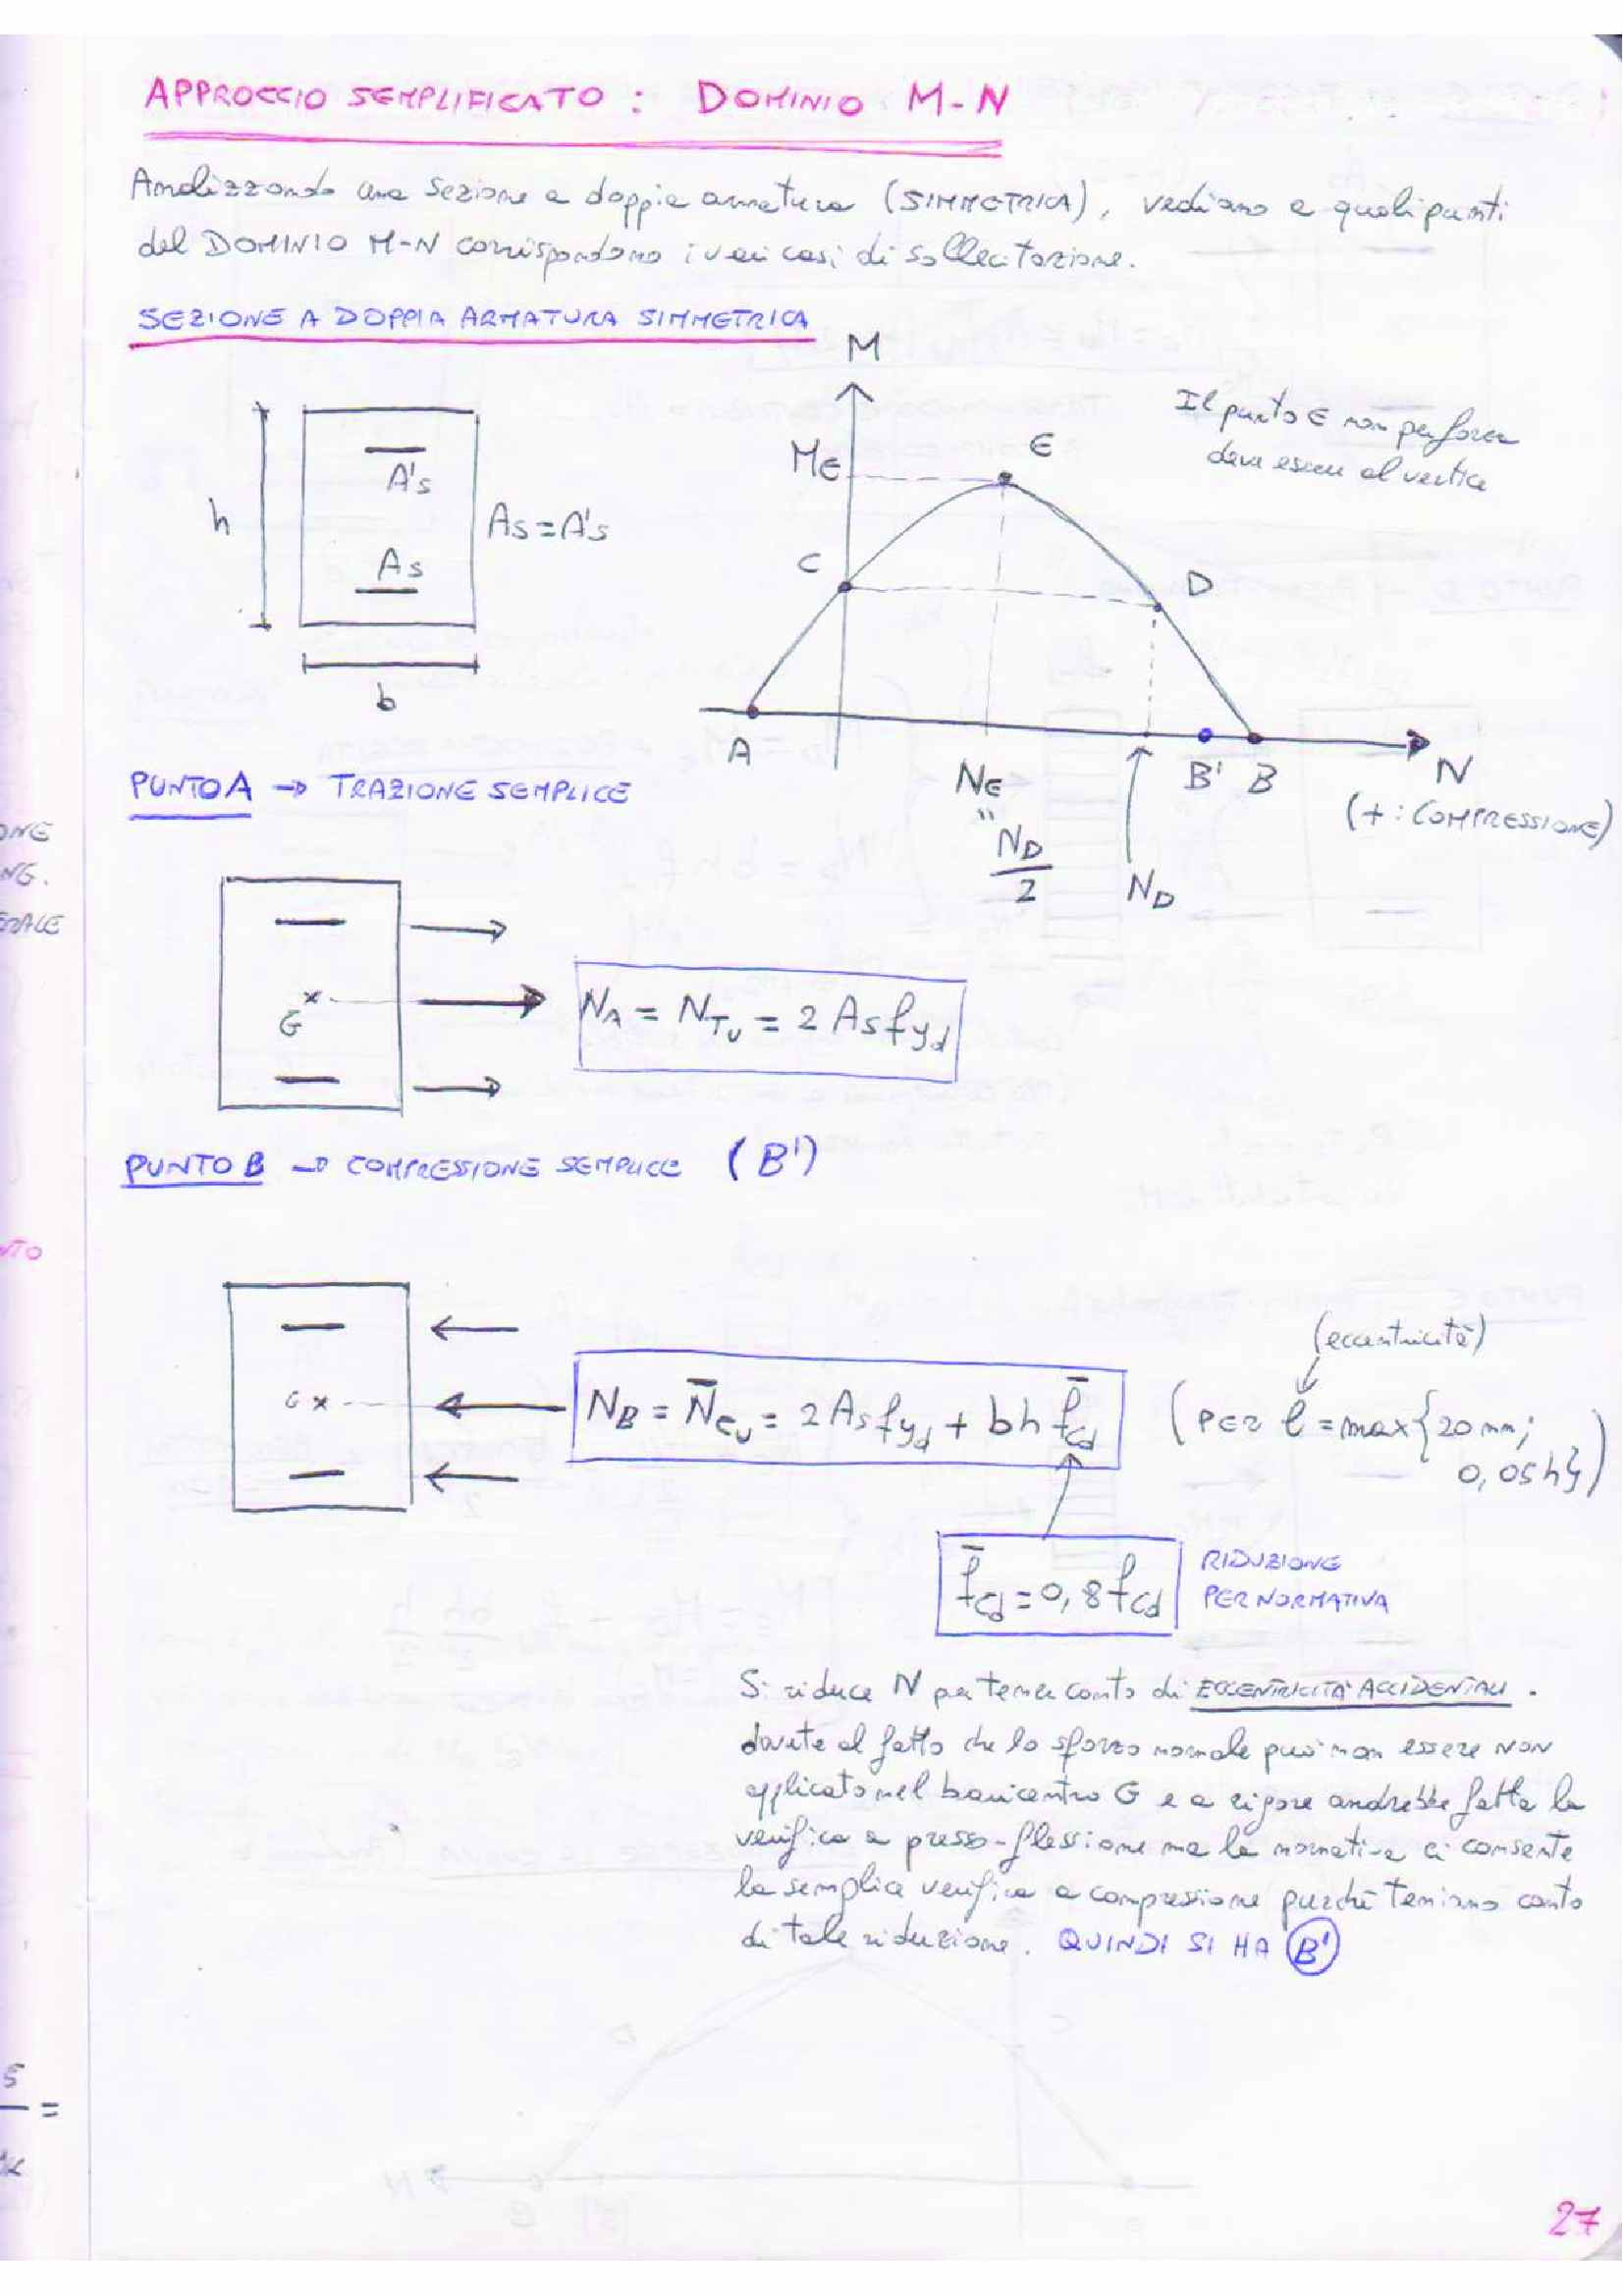 APPROCCIO SEMPLIFICATO : DOMINIO M-N
Analizzando una sezione a doppia armatura (SIMMETRICA), vediamo a quali punti
del DOMINIO M-N corrispondono i vari casi di sollecitazione.
SEZIONE A DOPPIA ARMATURA SIMMETRICA
h
A's
As
As = A's
b
M
ME
E
C
D
A
NE
"
ND
2
ND
B' B
N
(+ : COMPRESSIONE)
Il punto E non per forza
deve essere al vertice
PUNTO A → TRAZIONE SEMPLICE
G
NA = NTu = 2 As fyd
PUNTO B → COMPRESSIONE SEMPLICE (B')
G
NB = N̄cu = 2 As fyd + bh f̄cd
(eccentricità)
(PER e = max{20 mm;
0,05h})
f̄cd = 0,8 fcd
RIDUZIONE
PER NORMATIVA
Si riduce N per tener conto di ECCENTRICITÀ ACCIDENTALI.
dovute al fatto che lo sforzo normale può non essere NON
applicato nel baricentro G e a rigore andrebbe fatta la
verifica a presso-flessione ma la normativa ci consente
la semplice verifica a compressione purché teniamo conto
di tale riduzione. QUINDI SI HA B'
ONE
NG.
ERALE
NTO
5
=
27